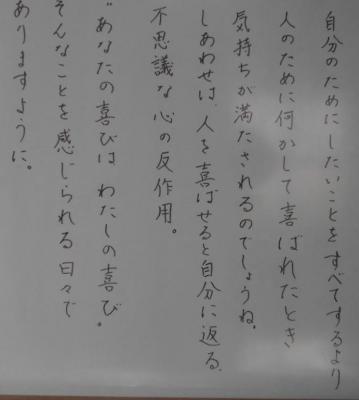 自分のためにしたいことをすべてするより
人のために何かして喜ばれたとき
気持ちが満たされるのでしょうね。
しあわせは、人を喜ばせると自分に返る、
不思議な心の反作用。
"あなたの喜びは わたしの喜び。
そんなことを感じられる日々で
ありますように。